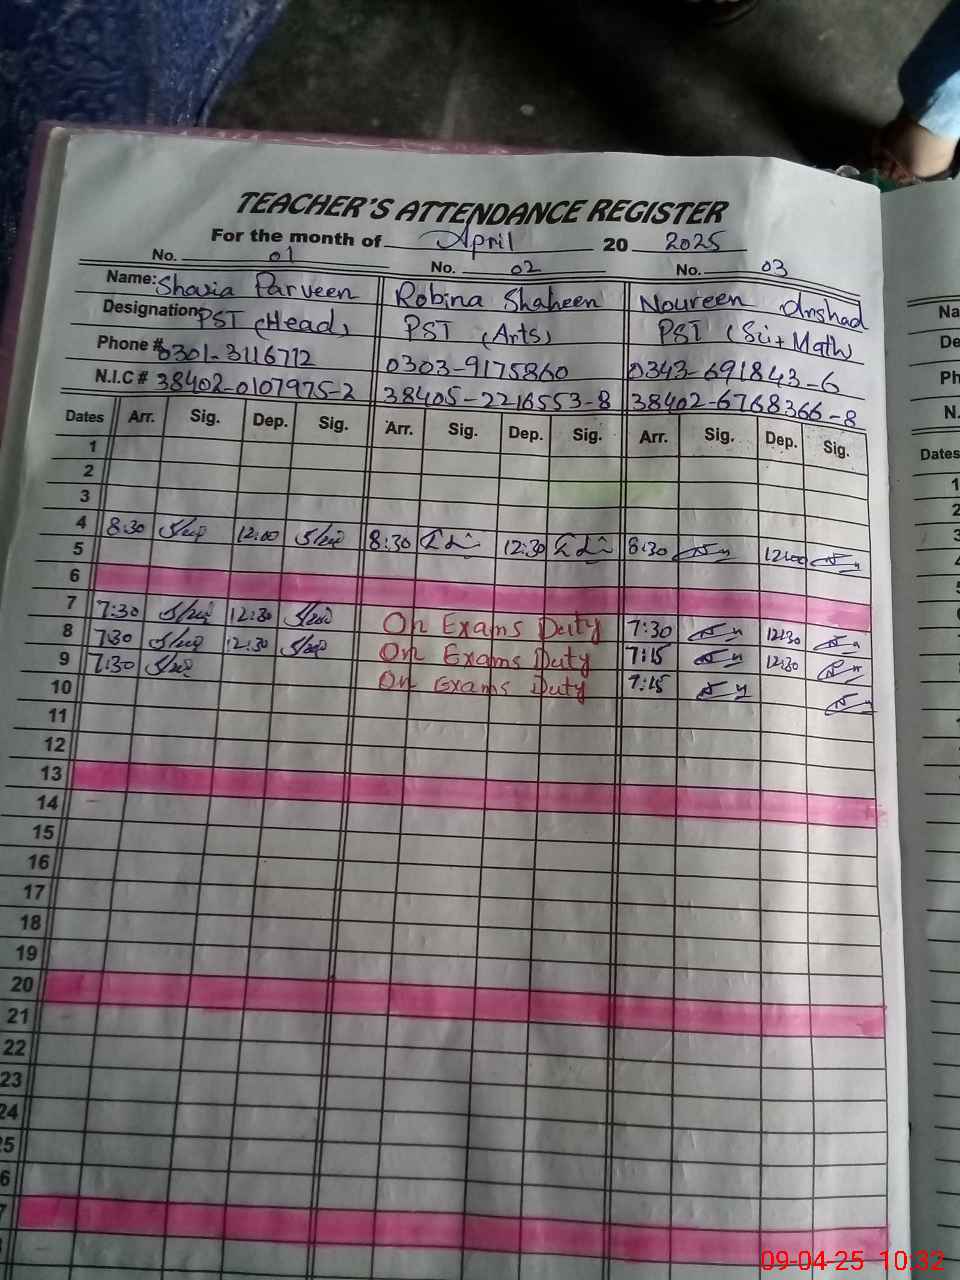 TEACHER'S ATTENDANCE REGISTER
For the month of April 20 2025
No. 01 No. 02 No. 03
Name: Shazia Parveen Robina Shaheen Noureen Arshad
Designation PST (Head) PST (Arts) PST (Sci + Math)
Phone # 0301-3116712 0303-9175860 0343-691843-6
N.I.C # 38402-0107975-2 38405-2216553-8 38402-6768366-8
Dates Arr. Sig. Dep. Sig. Arr. Sig. Dep. Sig. Arr. Sig. Dep. Sig.
1
2
3
4
5 8:30 12:00 8:30 12:30 8:30 12:00
6
7 7:30 12:30 On Exams Duty 7:30 12:30
8 7:30 12:30 On Exams Duty 7:15 12:30
9 7:30 On Exams Duty 7:15
10
11
12
13
14
15
16
17
18
19
20
21
22
23
24
25
Na
De
Ph
N.
Dates
1
2
3
4
5
09-04-25 10:32